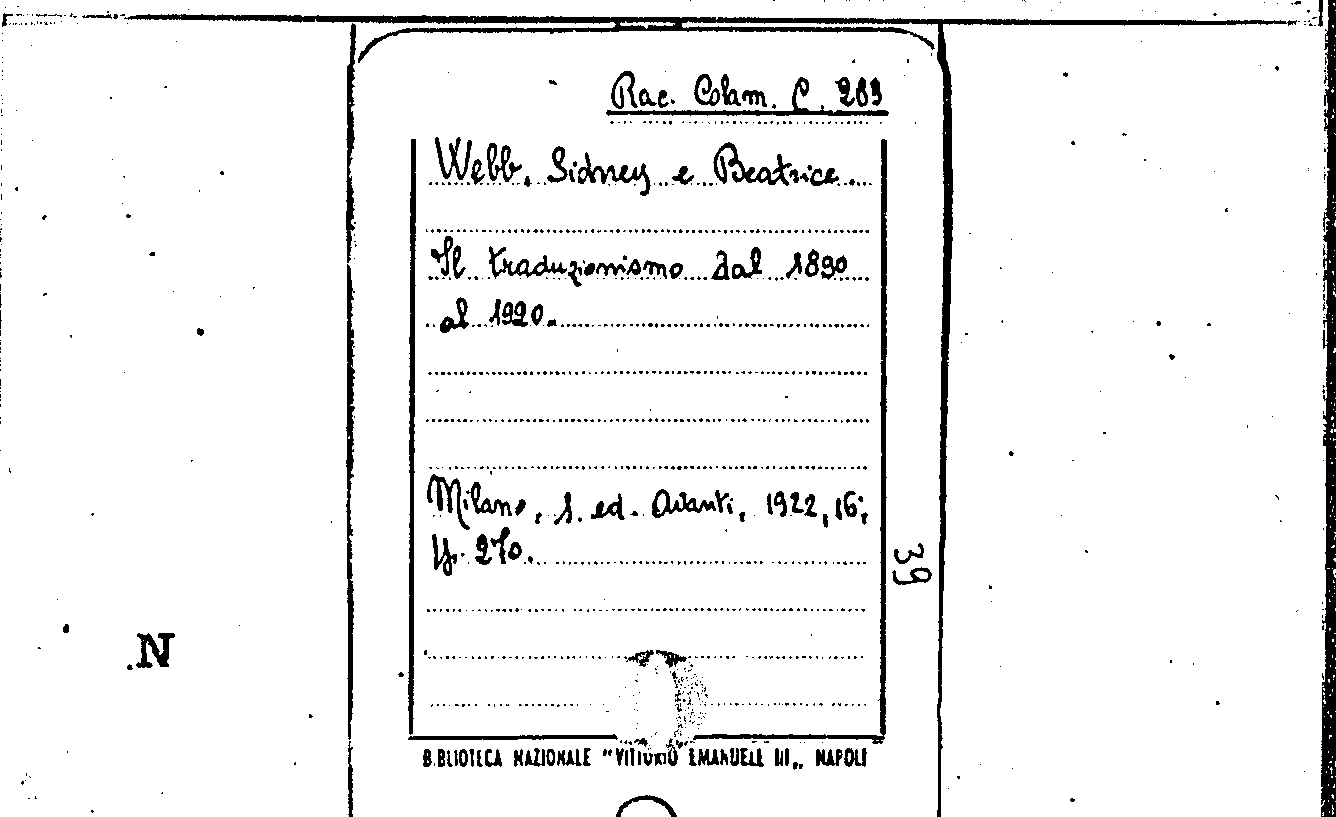 Rac. Colam. C. 283
Webb, Sidney e Beatrice.
Il traduzionismo dal 1890
al 1920.
Milano, s. ed. Avanti, 1922, 16°,
p. 270.
39
N
BIBLIOTECA NAZIONALE "VITTORIO EMANUELE III„ NAPOLI